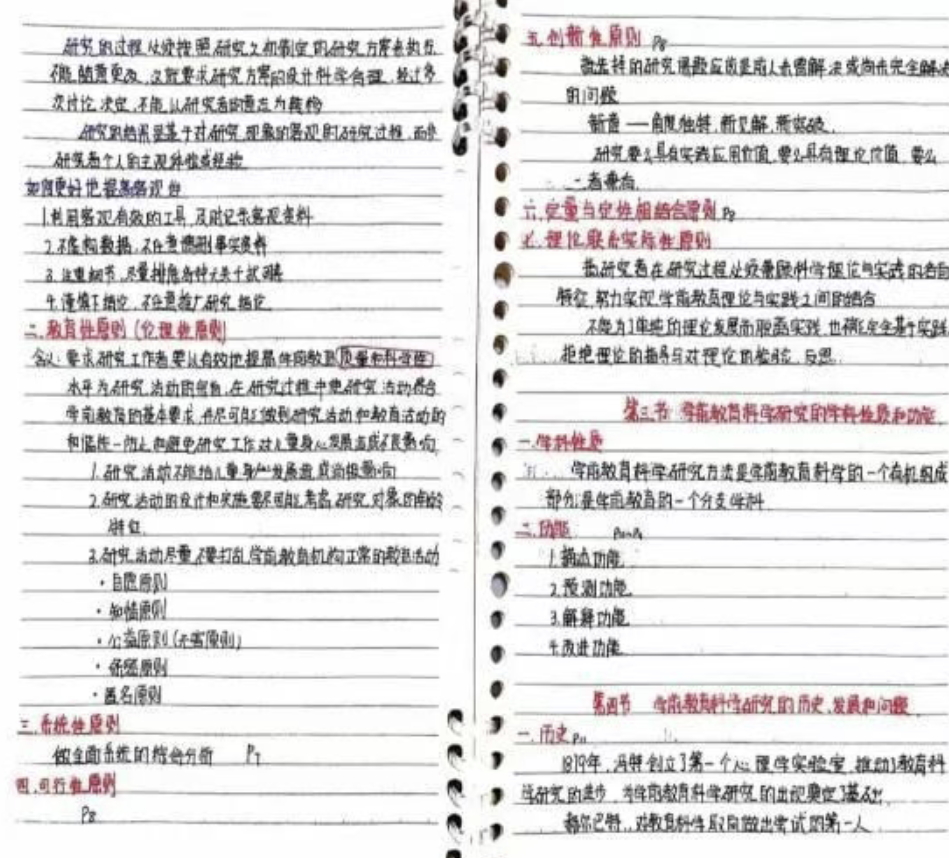 研究的过程必须按照研究之初制定的研究方案去执行
不能随意更改,这就要求研究方案的设计科学合理,经过多
次讨论决定,不能以研究者的意志为转移
研究的结果是基于对研究现象的客观的研究过程,而非
研究者个人的主观体验或经验
如何更好地提高客观性
1.利用客观有效的工具,及时记录客观资料
2.不虚构数据,不任意增删事实资料
3.注重细节,尽量排除各种无关干扰因素
4.谨慎下结论,不任意推广研究结论
二.教育性原则(伦理性原则)
含义:要求研究工作者要以有效地提高学前教育质量和科学性
水平为研究活动的宗旨,在研究过程中使研究活动符合
学前教育的基本要求,并尽可能做到研究活动和教育活动的
和谐统一防止和避免研究工作对儿童身心发展造成不良影响
1.研究活动不能给儿童身心发展造成消极影响
2.研究活动的设计和实施要尽可能考虑研究对象的年龄
特征.
3.研究活动尽量不要打乱学前教育机构正常的教育活动
·自愿原则
·知情原则
·公益原则(无害原则)
·保密原则
·匿名原则
三.系统性原则
做全面系统的综合分析 P7
四.可行性原则
P8
五.创新性原则 P8
指选择的研究课题应该是前人未曾解决或尚未完全解决
的问题
新意——角度独特,新见解,新突破.
研究要么具有实践应用价值,要么具有理论价值,要么
二者兼有.
六.定量与定性相结合原则 P8
七.理论联系实际性原则
指研究者在研究过程必须兼顾科学理论与实践的各自
特征,努力实现学前教育理论与实践之间的结合
不能为了单纯的理论发展而脱离实践,也不能完全基于实践
拒绝理论的指导与对理论的检验、反思.
第三节 学前教育科学研究的学科性质和功能
一.学科性质
学前教育科学研究方法是学前教育科学的一个有机组成
部分,是学前教育的一个分支学科
二.功能
1.描述功能
2.预测功能
3.解释功能
4.改进功能
第四节 学前教育科学研究的历史、发展和问题
一.历史 P11
1879年,冯特创立了第一个心理学实验室,推动了教育科
学研究的进步,为学前教育科学研究的出现奠定了基础.
赫尔巴特,对教育科学取向做出尝试的第一人